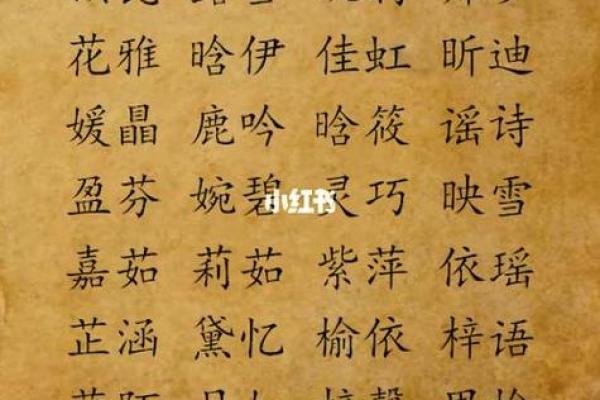 花雅 晗伊 佳虹 昕迪
媛晶 鹿吟 晗筱 谣诗
盈芬 婉碧 灵巧 映雪
小红书
嘉茹 莉茹 紫萍 依瑶
芷涵 黛忆 榆依 梓语